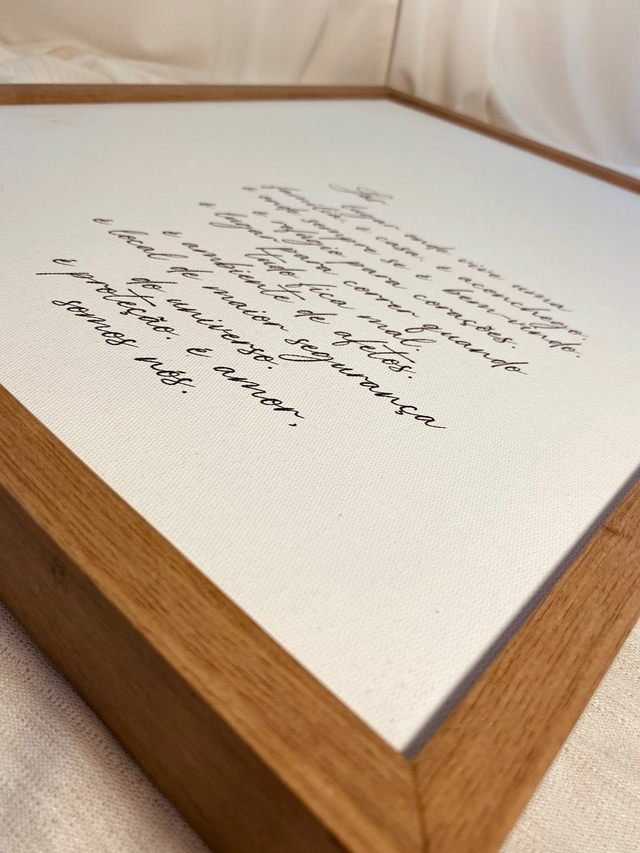 lugar onde vive uma
família. é casa, é aconchego,
é onde sempre se é bem-vindo.
é refúgio para corações.
é lugar para correr quando
tudo fica mal.
é ambiente de afetos.
é local de maior segurança
do universo.
é proteção. é amor,
somos nós.